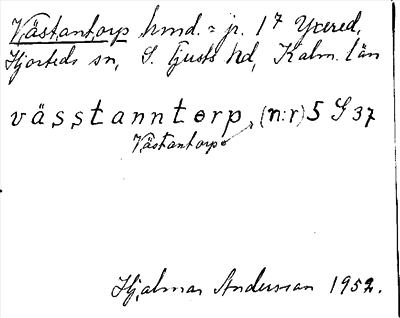 Västantorp hmd. = jr. 1⁷ Yxered,
Hjorteds sn, S. Tjusts hd, Kalm. län
vässtanntorp, (n:r) 5 S 37
Västantorp
Hjalmar Andersson 1952.